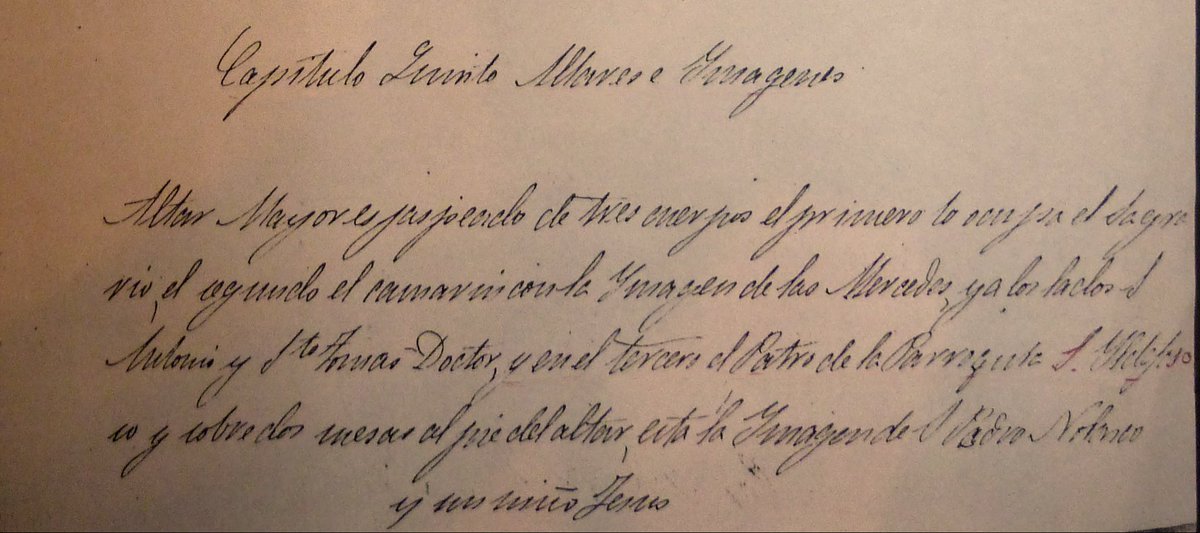 Capítulo Quinto Altares e Ymagenes
Altar Mayor es jaspeado de tres cuerpos el primero lo ocupa el Sagra
rio, el segundo el camarin con la Ymagen de las Mercedes, y a los lados S
Antonio y Sto Tomas Doctor, y en el tercero el Patro de la Parroquia S.
co y sobre dos mesas al pie del altar, está la Ymagen de S Pedro Nolasco
y un niño Jesus